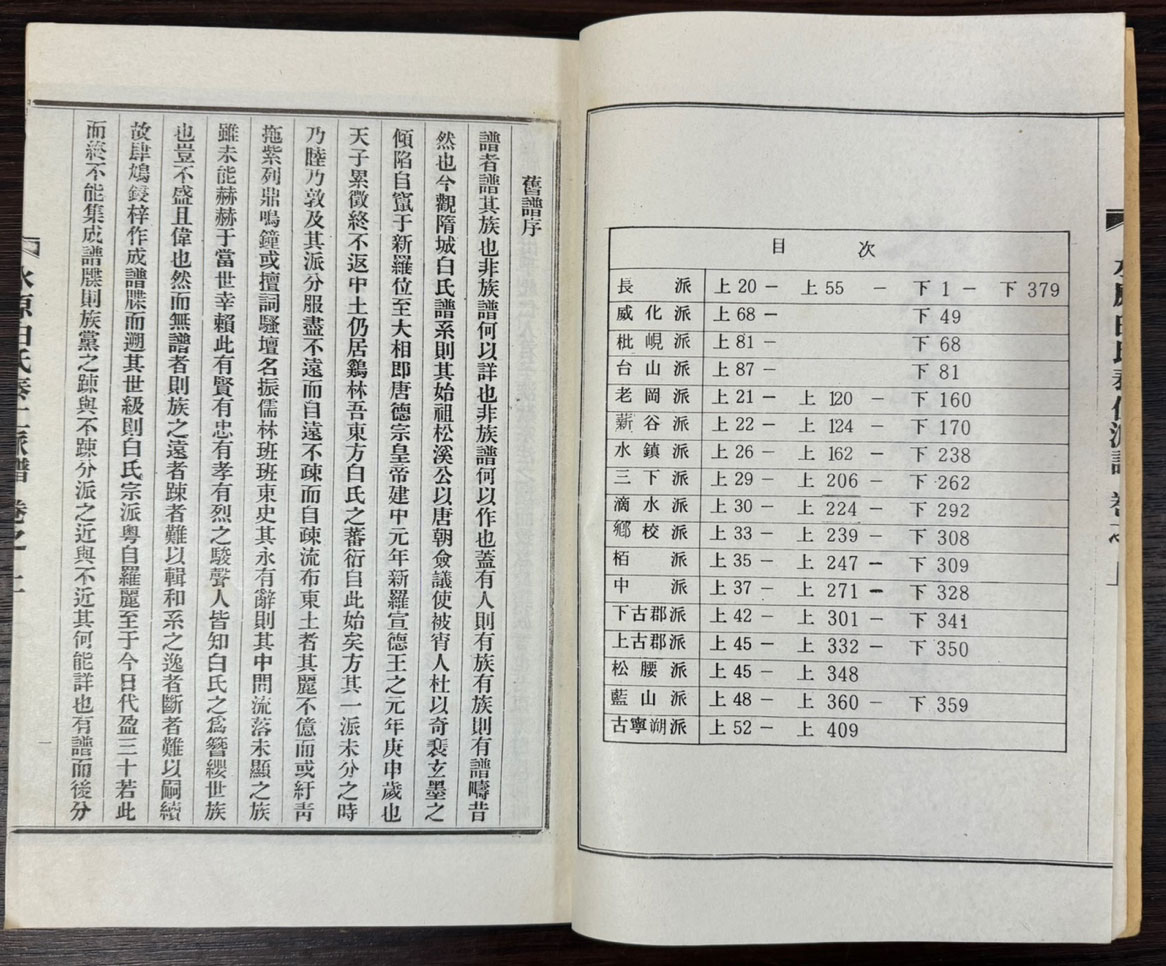 水原白氏泰仁派譜 卷之 上
目 次
長 派 上 20 － 上 55 － 下 1 － 下 379
威 化 派 上 68 － 下 49
枇 峴 派 上 81 － 下 68
台 山 派 上 87 － 下 81
老 岡 派 上 21 － 上 120 － 下 160
薪 谷 派 上 22 － 上 124 － 下 170
水 鎮 派 上 26 － 上 162 － 下 238
三 下 派 上 29 － 上 206 － 下 262
滴 水 派 上 30 － 上 224 － 下 292
鄕 校 派 上 33 － 上 239 － 下 308
栢 派 上 35 － 上 247 － 下 309
中 派 上 37 － 上 271 － 下 328
下古郡派 上 42 － 上 301 － 下 341
上古郡派 上 45 － 上 332 － 下 350
松 腰 派 上 45 － 上 348
藍 山 派 上 48 － 上 360 － 下 359
古寧朔派 上 52 － 上 409
舊譜序
譜者譜其族也非族譜何以詳也非族譜何以作也蓋有人則有族有族則有譜疇昔
然也今觀隋城白氏譜系則其始祖松溪公以唐朝僉議使被宵人杜以奇裴玄墨之
傾陷自竄于新羅位至大相卽唐德宗皇帝建中元年新羅宣德王之元年庚申歲也
天子累徵終不返中土仍居鷄林吾東方白氏之蕃衍自此始矣方其一派未分之時
乃睦乃敦及其派分服盡不遠而自遠不疎而自疎流布東土者其麗不億而或紆靑
拖紫列鼎鳴鐘或擅詞騷壇名振儒林班班東史其永有辭則其中間流落未顯之族
雖未能赫赫于當世幸賴此有賢有忠有孝有烈之駿聲人皆知白氏之爲簪纓世族
也豈不盛且偉也然而無譜者則族之遠者踈者難以輯和系之逸者斷者難以嗣續
故肆鳩鋟梓作成譜牒而遡其世級則白氏宗派粤自羅麗至于今日代盈三十若此
而終不能集成譜牒則族黨之踈與不踈分派之近與不近其何能詳也有譜而後分
一
水原白氏泰仁派譜 卷之 上